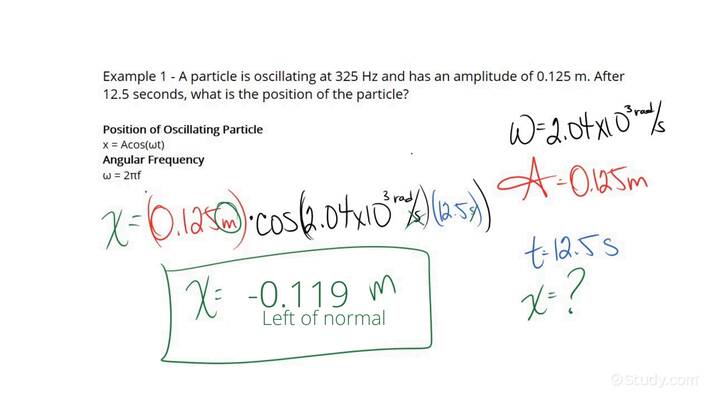 Example 1 - A particle is oscillating at 325 Hz and has an amplitude of 0.125 m. After
12.5 seconds, what is the position of the particle?
Position of Oscillating Particle
x = Acos(ωt)
Angular Frequency
ω = 2πf
ω = 2.04x10³ rad/s
A = 0.125m
x = (0.125m)·cos(2.04x10³ rad/s)(12.5s))
t = 12.5 s
x = ?
x = -0.119 m
Left of normal
©Study.com